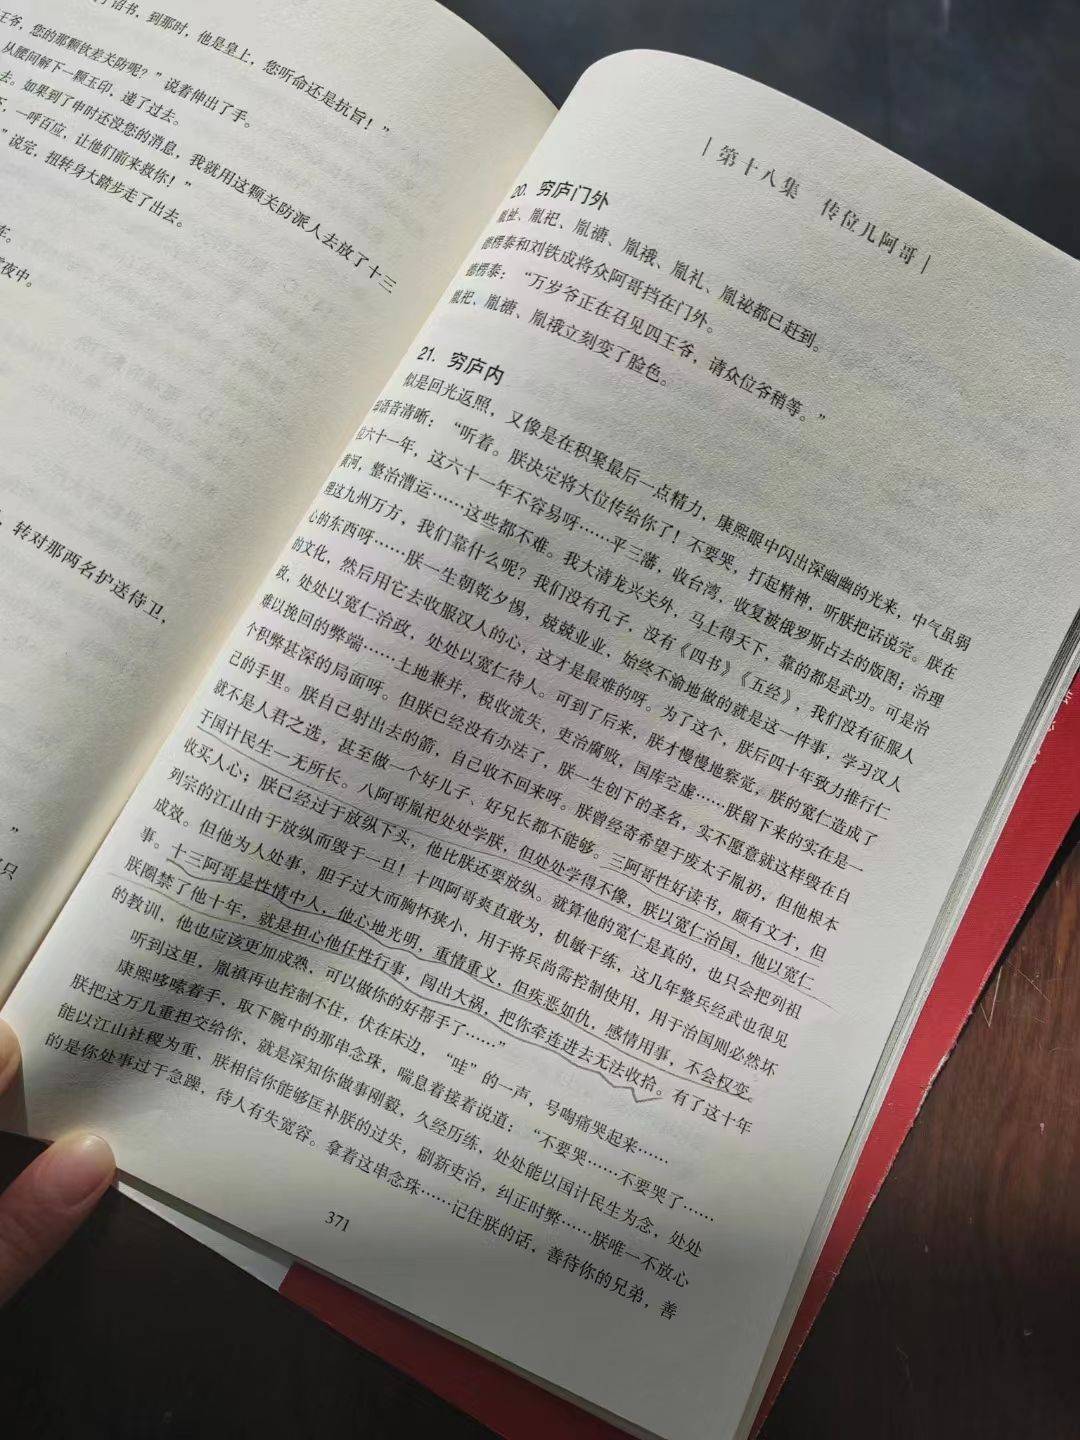 诏书，到那时，他是皇上，您听命还是抗旨！”
王爷，您的那颗钦差关防呢？”说着伸出了手。
从腰间解下一颗玉印，递了过去。
去。如果到了申时还没您的消息，我就用这颗关防派人去放了十三
下，一呼百应，让他们前来救你！”
”说完，扭转身大踏步走了出去。
车。
夜中。
，转对那两名护送侍卫，
”
只
第十八集 传位几阿哥
20. 穷庐门外
胤祉、胤祀、胤禟、胤䄉、胤礼、胤祕都已赶到。
德楞泰和刘铁成将众阿哥挡在门外。
德楞泰：“万岁爷正在召见四王爷，请众位爷稍等。”
胤祀、胤禟、胤䄉立刻变了脸色。
21. 穷庐内
似是回光返照，又像是在积聚最后一点精力，康熙眼中闪出深幽幽的光来，中气虽弱
却语音清晰：“听着。朕决定将大位传给你了！不要哭，打起精神，听朕把话说完。朕在
位六十一年，这六十一年不容易呀……平三藩，收台湾，收复被俄罗斯占去的版图；治理
黄河，整治漕运……这些都不难。我大清龙兴关外，马上得天下，靠的都是武功。可是治
理这九州万方，我们靠什么呢？我们没有孔子，没有《四书》《五经》，我们没有征服人
心的东西呀……朕一生朝乾夕惕，兢兢业业，始终不渝地做的就是这一件事，学习汉人
的文化，然后用它去收服汉人的心，这才是最难的呀。为了这个，朕后四十年致力推行仁
政，处处以宽仁治政，处处以宽仁待人。可到了后来，朕才慢慢地察觉，朕的宽仁造成了
难以挽回的弊端……土地兼并，税收流失，吏治腐败，国库空虚……朕留下来的实在是一
个积弊甚深的局面呀。但朕已经没有办法了，朕一生创下的圣名，实不愿意就这样毁在自
己的手里。朕自己射出去的箭，自己收不回来呀。朕曾经寄希望于废太子胤礽，但他根本
就不是人君之选，甚至做一个好儿子、好兄长都不能够。三阿哥性好读书，颇有文才，但
于国计民生一无所长。八阿哥胤祀处处学朕，但处处学得不像，朕以宽仁治国，他以宽仁
收买人心；朕已经过于放纵下头，他比朕还要放纵。就算他的宽仁是真的，也只会把列祖
列宗的江山由于放纵而毁于一旦！十四阿哥爽直敢为，机敏干练，这几年整兵经武也很见
成效。但他为人处事，胆子过大而胸怀狭小，用于将兵尚需控制使用，用于治国则必然坏
事。十三阿哥是性情中人，他心地光明，重情重义，但疾恶如仇，感情用事，不会权变。
朕圈禁了他十年，就是担心他任性行事，闯出大祸，把你牵连进去无法收拾。有了这十年
的教训，他也应该更加成熟，可以做你的好帮手了……”
听到这里，胤禛再也控制不住，伏在床边，“哇”的一声，号啕痛哭起来……
康熙哆嗦着手，取下腕中的那串念珠，喘息着接着说道：“不要哭……不要哭了……
朕把这万几重担交给你，就是深知你做事刚毅，久经历练，处处能以国计民生为念，处处
能以江山社稷为重、朕相信你能够匡补朕的过失，刷新吏治，纠正时弊……朕唯一不放心
的是你处事过于急躁，待人有失宽容。拿着这串念珠……记住朕的话，善待你的兄弟，善
371